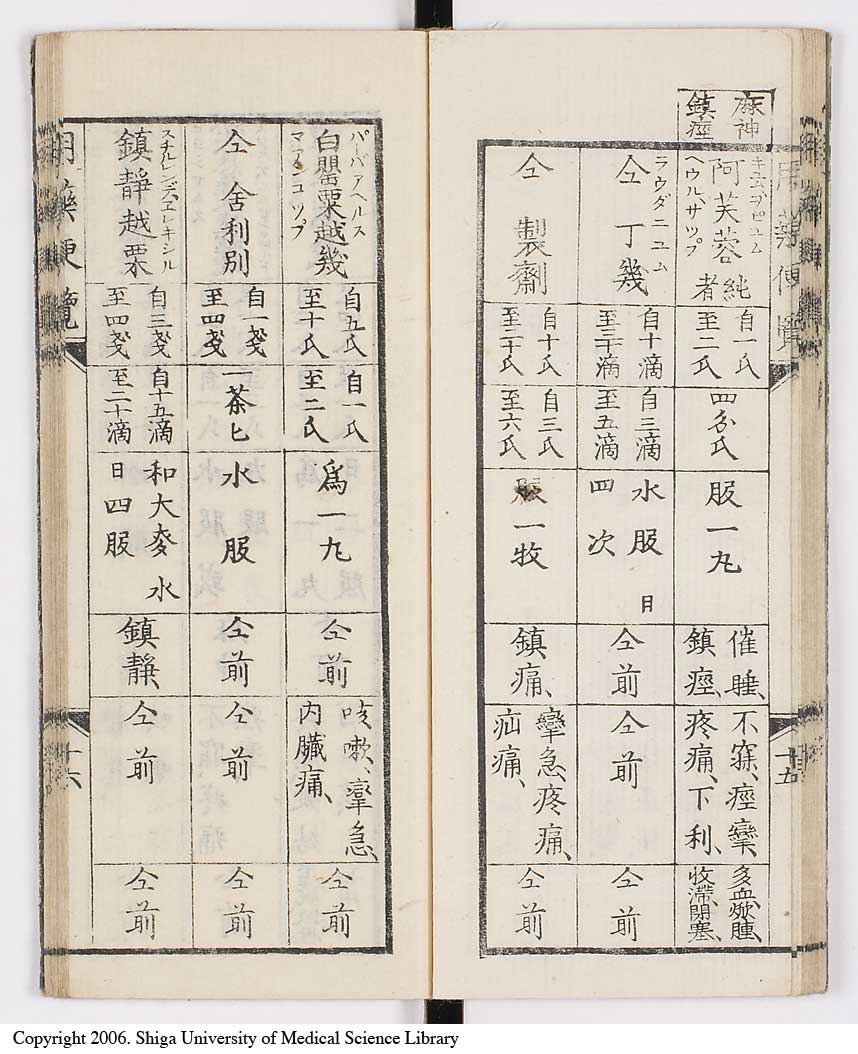 麻神
鎮痙
キユムヲピユム
阿芙蓉 純者
ヘウル、サツプ
自一氏
至二氏
四分氏
服一丸
催睡、
鎮痙、
不寐、痙攣、
疼痛、下利、
多血、焮腫、
收滯、閉塞、
ラウダニユム
仝 丁幾
自十滴
至三十滴
自三滴
至五滴
水服 日
四次
仝前
仝前
仝前
仝 製齋
自十氏
至二十氏
自三氏
至六氏
服一牧
鎮痛、
攣急、疼痛、
疝痛、
仝前
用藥便覽
十五
パーパアヘルス
白罌粟越幾
マアンコツプ
自五氏
至十氏
自一氏
至二氏
爲一丸
仝前
咳嗽、攣急、
内臟痛、
仝前
仝 舍利別
自一戔
至四戔
一茶匕
水服
仝前
仝前
仝前
スチルレンデエレキシル
鎮靜越栗
自三戔
至四戔
自十五滴
至二十滴
和大麥水
日四服
鎮靜、
仝前
仝前
用藥便覽
十六
Copyright 2006. Shiga University of Medical Science Library